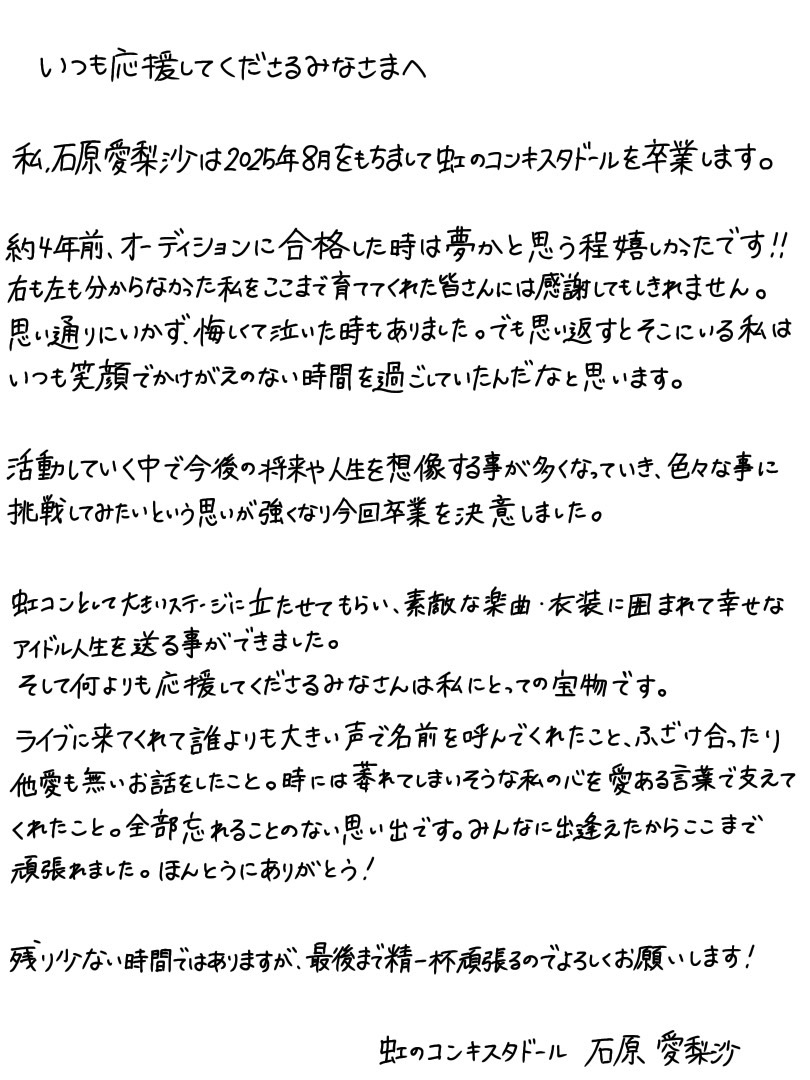 いつも応援してくださるみなさまへ
私、石原愛梨沙は2025年8月をもちまして虹のコンキスタドールを卒業します。
約4年前、オーディションに合格した時は夢かと思う程嬉しかったです!!
右も左も分からなかった私をここまで育ててくれた皆さんには感謝してもしきれません。
思い通りにいかず、悔しくて泣いた時もありました。でも思い返すとそこにいる私は
いつも笑顔でかけがえのない時間を過ごしていたんだなと思います。
活動していく中で今後の将来や人生を想像する事が多くなっていき、色々な事に
挑戦してみたいという思いが強くなり今回卒業を決意しました。
虹コンとして大きいステージに立たせてもらい、素敵な楽曲・衣装に囲まれて幸せな
アイドル人生を送る事ができました。
そして何よりも応援してくださるみなさんは私にとっての宝物です。
ライブに来てくれて誰よりも大きい声で名前を呼んでくれたこと、ふざけ合ったり
他愛も無いお話をしたこと。時には萎れてしまいそうな私の心を愛ある言葉で支えて
くれたこと。全部忘れることのない思い出です。みんなに出逢えたからここまで
頑張れました。ほんとうにありがとう!
残り少ない時間ではありますが、最後まで精一杯頑張るのでよろしくお願いします!
虹のコンキスタドール 石原 愛梨沙